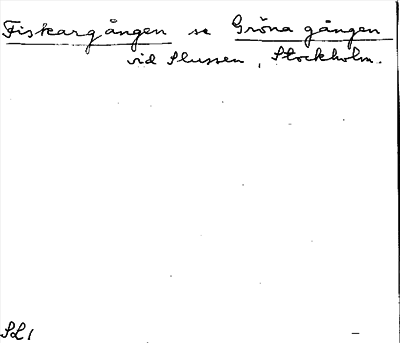 Fiskargången se Gröna gången
vid Slussen, Stockholm.
SL1